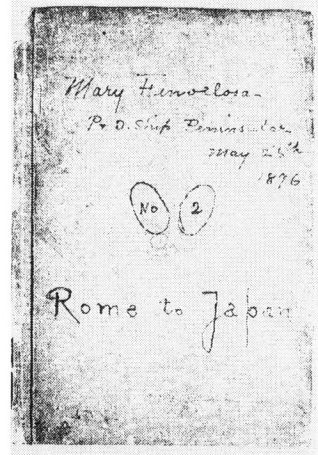 Mary Fenollosa
P. & O. Ship Peninsular
May 25th
1896
No 2
Rome to Japan